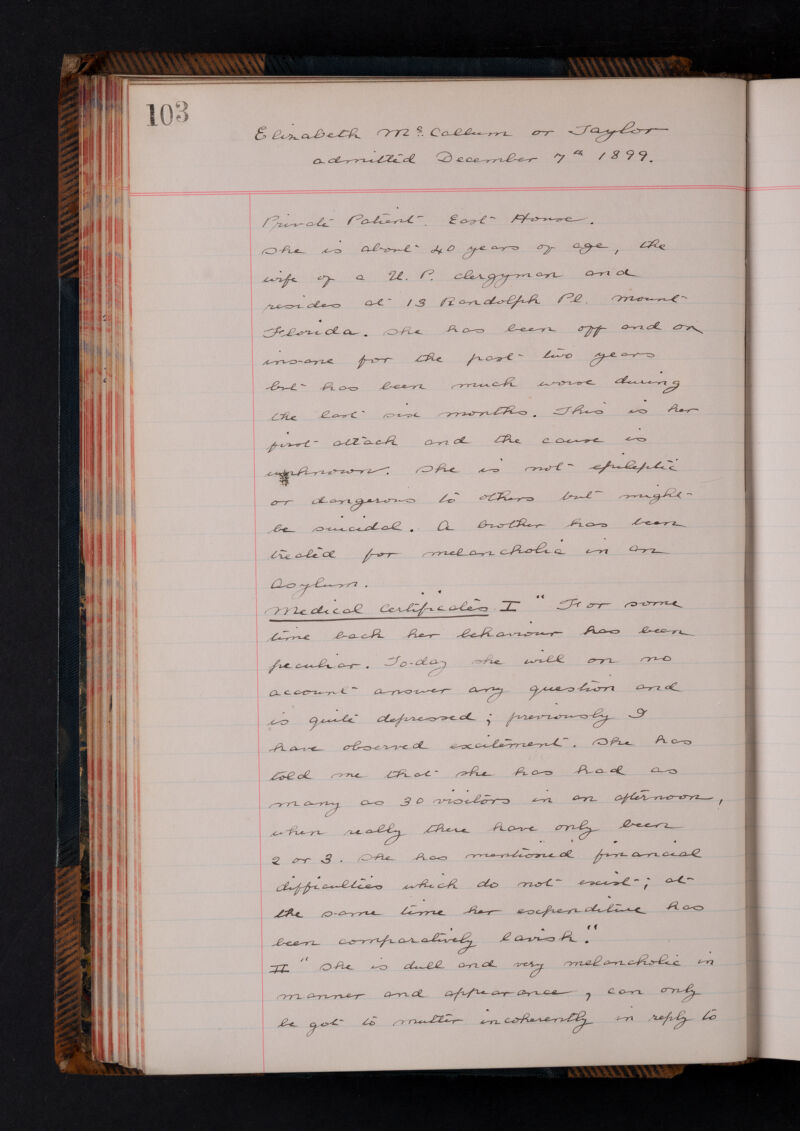 103
Elizabeth Mc. Callum or Taylor
admitted December 7th 1899.
Private Patient. East House.
She is about 40 years of age, the
wife of a U. P. clergyman and
resides at 13 Randolph Pl. Mount
Florida. She has been off and on
insane for the past two years
but has been much worse during
the last six months. This is her
first attack and the cause is
unknown. She is not epileptic
or dangerous to others but might
be suicidal. A brother has been
treated for melancholia in an
Asylum.
Medical Certificates I "For some
time back her behaviour has been
peculiar. To-day she will on no
account answer any question and
is quite depressed; previously I
have observed excitement. She has
told me that she has had as
many as 30 visitors in an afternoon,
when really there have only been
2 or 3. She has mentioned financial
difficulties which do not exist; at
the same time her expenditure has
been comparatively lavish."
II "She is dull and very melancholic in
manner and appearance, can only
be got to mutter incoherently in reply to